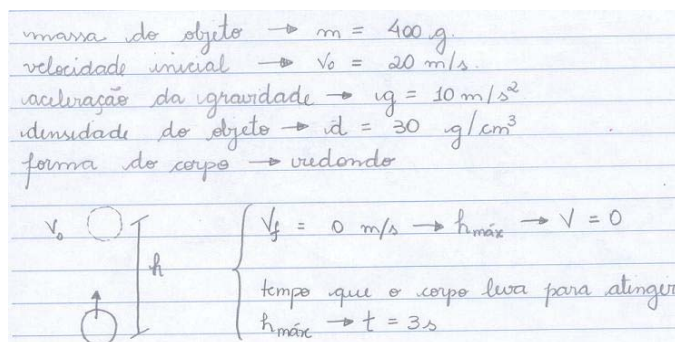 massa do objeto → m = 400 g.
velocidade inicial → V₀ = 20 m/s.
aceleração da gravidade → g = 10 m/s²
densidade do objeto → d = 30 g/cm³
forma do corpo → redondo
V₀
h
Vf = 0 m/s → hmáx → V = 0
tempo que o corpo leva para atingir
hmáx → t = 3s